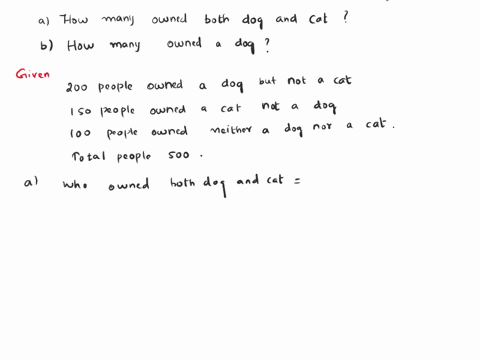 a) How many owned both dog and cat ?
b) How many owned a dog ?
Given
200 people owned a dog but not a cat
150 people owned a cat not a dog
100 people owned neither a dog nor a cat.
Total people 500.
a) who owned both dog and cat =